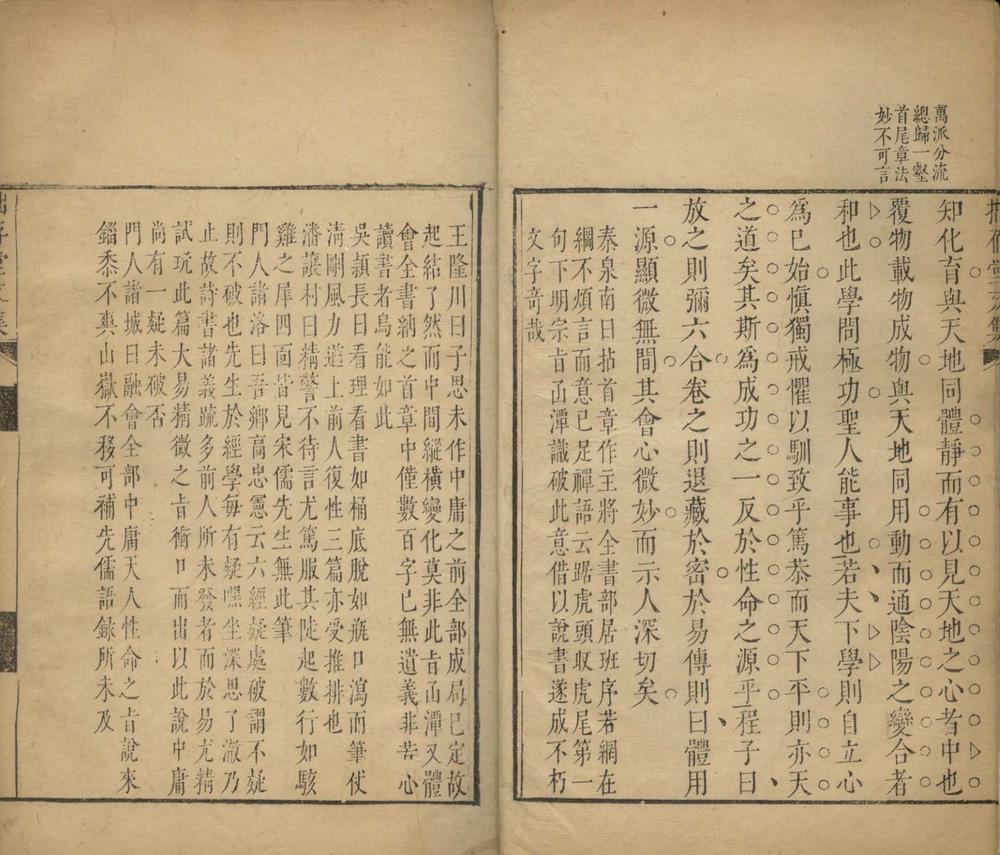 萬派分流
總歸一壑
首尾章法
妙不可言
知化育與天地同體靜而有以見天地之心者中也
覆物載物成物與天地同用動而通陰陽之變合者
和也此學問極功聖人能事也若夫下學則自立心
為已始愼獨戒懼以馴致乎篤恭而天下平則亦天
之道矣其斯為成功之一反於性命之源乎程子曰
放之則彌六合卷之則退藏於密於易傳則曰體用
一源顯微無間其會心微妙而示人深切矣
秦泉南曰拈首章作主將全書部居班序若網在
綱不煩言而意已足禪語云踞虎頭収虎尾第一
句下明宗旨函潭識破此意借以說書遂成不朽
文字竒哉
王隆川曰子思未作中庸之前全部成局已定故
起結了然而中間縱横變化莫非此旨函潭又體
會全書納之首章中僅數百字已無遺義非苦心
讀書者烏能如此
吳頴長曰看理看書如桶底脫如瓶口瀉而筆仗
淸剛風力遒上前人復性三篇亦受推排也
潘讓村曰精警不待言尤篤服其陡起數行如駭
雞之犀四面皆見宋儒先生無此筆
門人諸洛曰吾鄉高忠憲云六經疑處破謂不疑
則不破也先生於經學每有疑嘿坐深思了澈乃
止故詩書諸義䟽多前人所未發者而於易尤精
試玩此篇大易精微之旨衝口而出以此說中庸
尚有一疑未破否
門人諸城曰融會全部中庸天人性命之旨說來
錙黍不爽山嶽不移可補先儒語録所未及